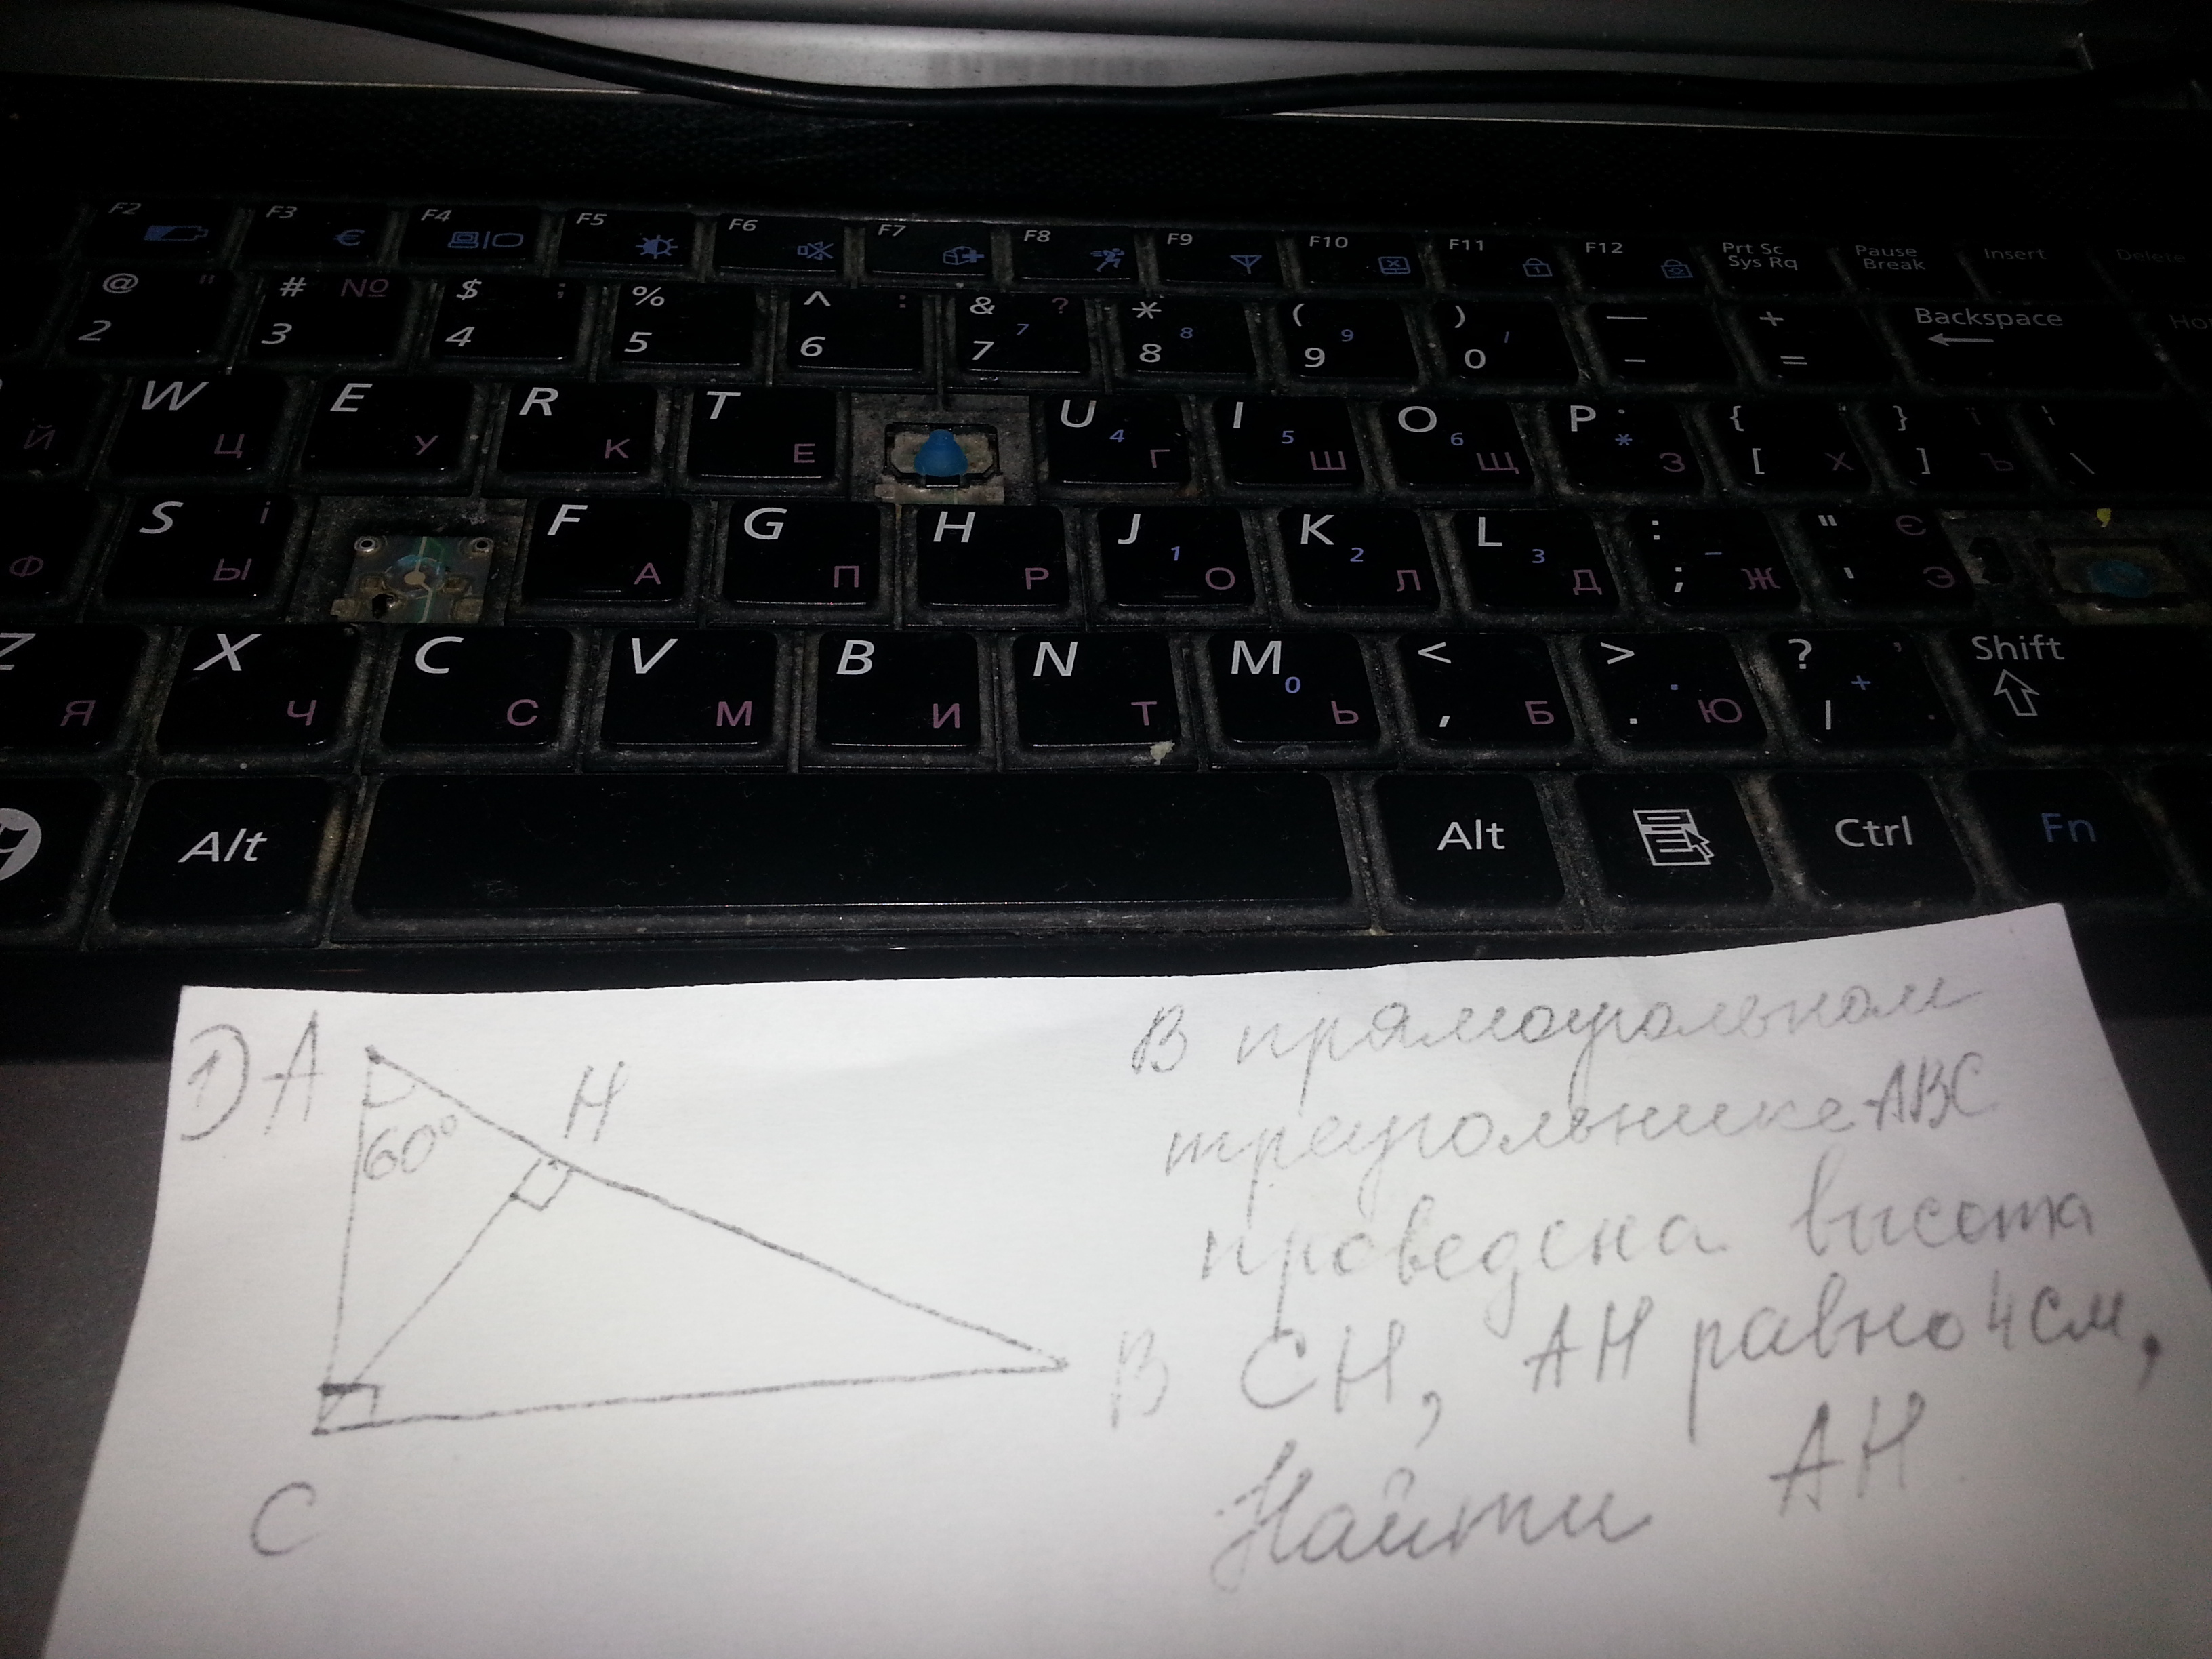 F2 F3 € F4 F5 F6 F7 F8 F9 F10 F11 F12 Prt Sc Sys Rq Pause Break Insert Delete
@ " 2 # № 3 $ ; 4 % 5 ^ : 6 & ? 7 7 * 8 8 ( 9 9 ) / 0 — - + = Backspace
Й W Ц E У R К T Е U 4 Г I 5 Ш O 6 Щ P * З { [ Х } ] Ъ \
Ф S і Ы F А G П H Р J 1 О K 2 Л L 3 Д : ; - Ж " ' Є Э
Z Я X Ч C С V М B И N Т M 0 Ь < , Б > . Ю ? / + . Shift
Alt Alt Ctrl Fn
1) A
60°
H
B
C
В прямоугольном
треугольнике ABC
проведена высота
CH, AH равно 4 см,
Найти AH